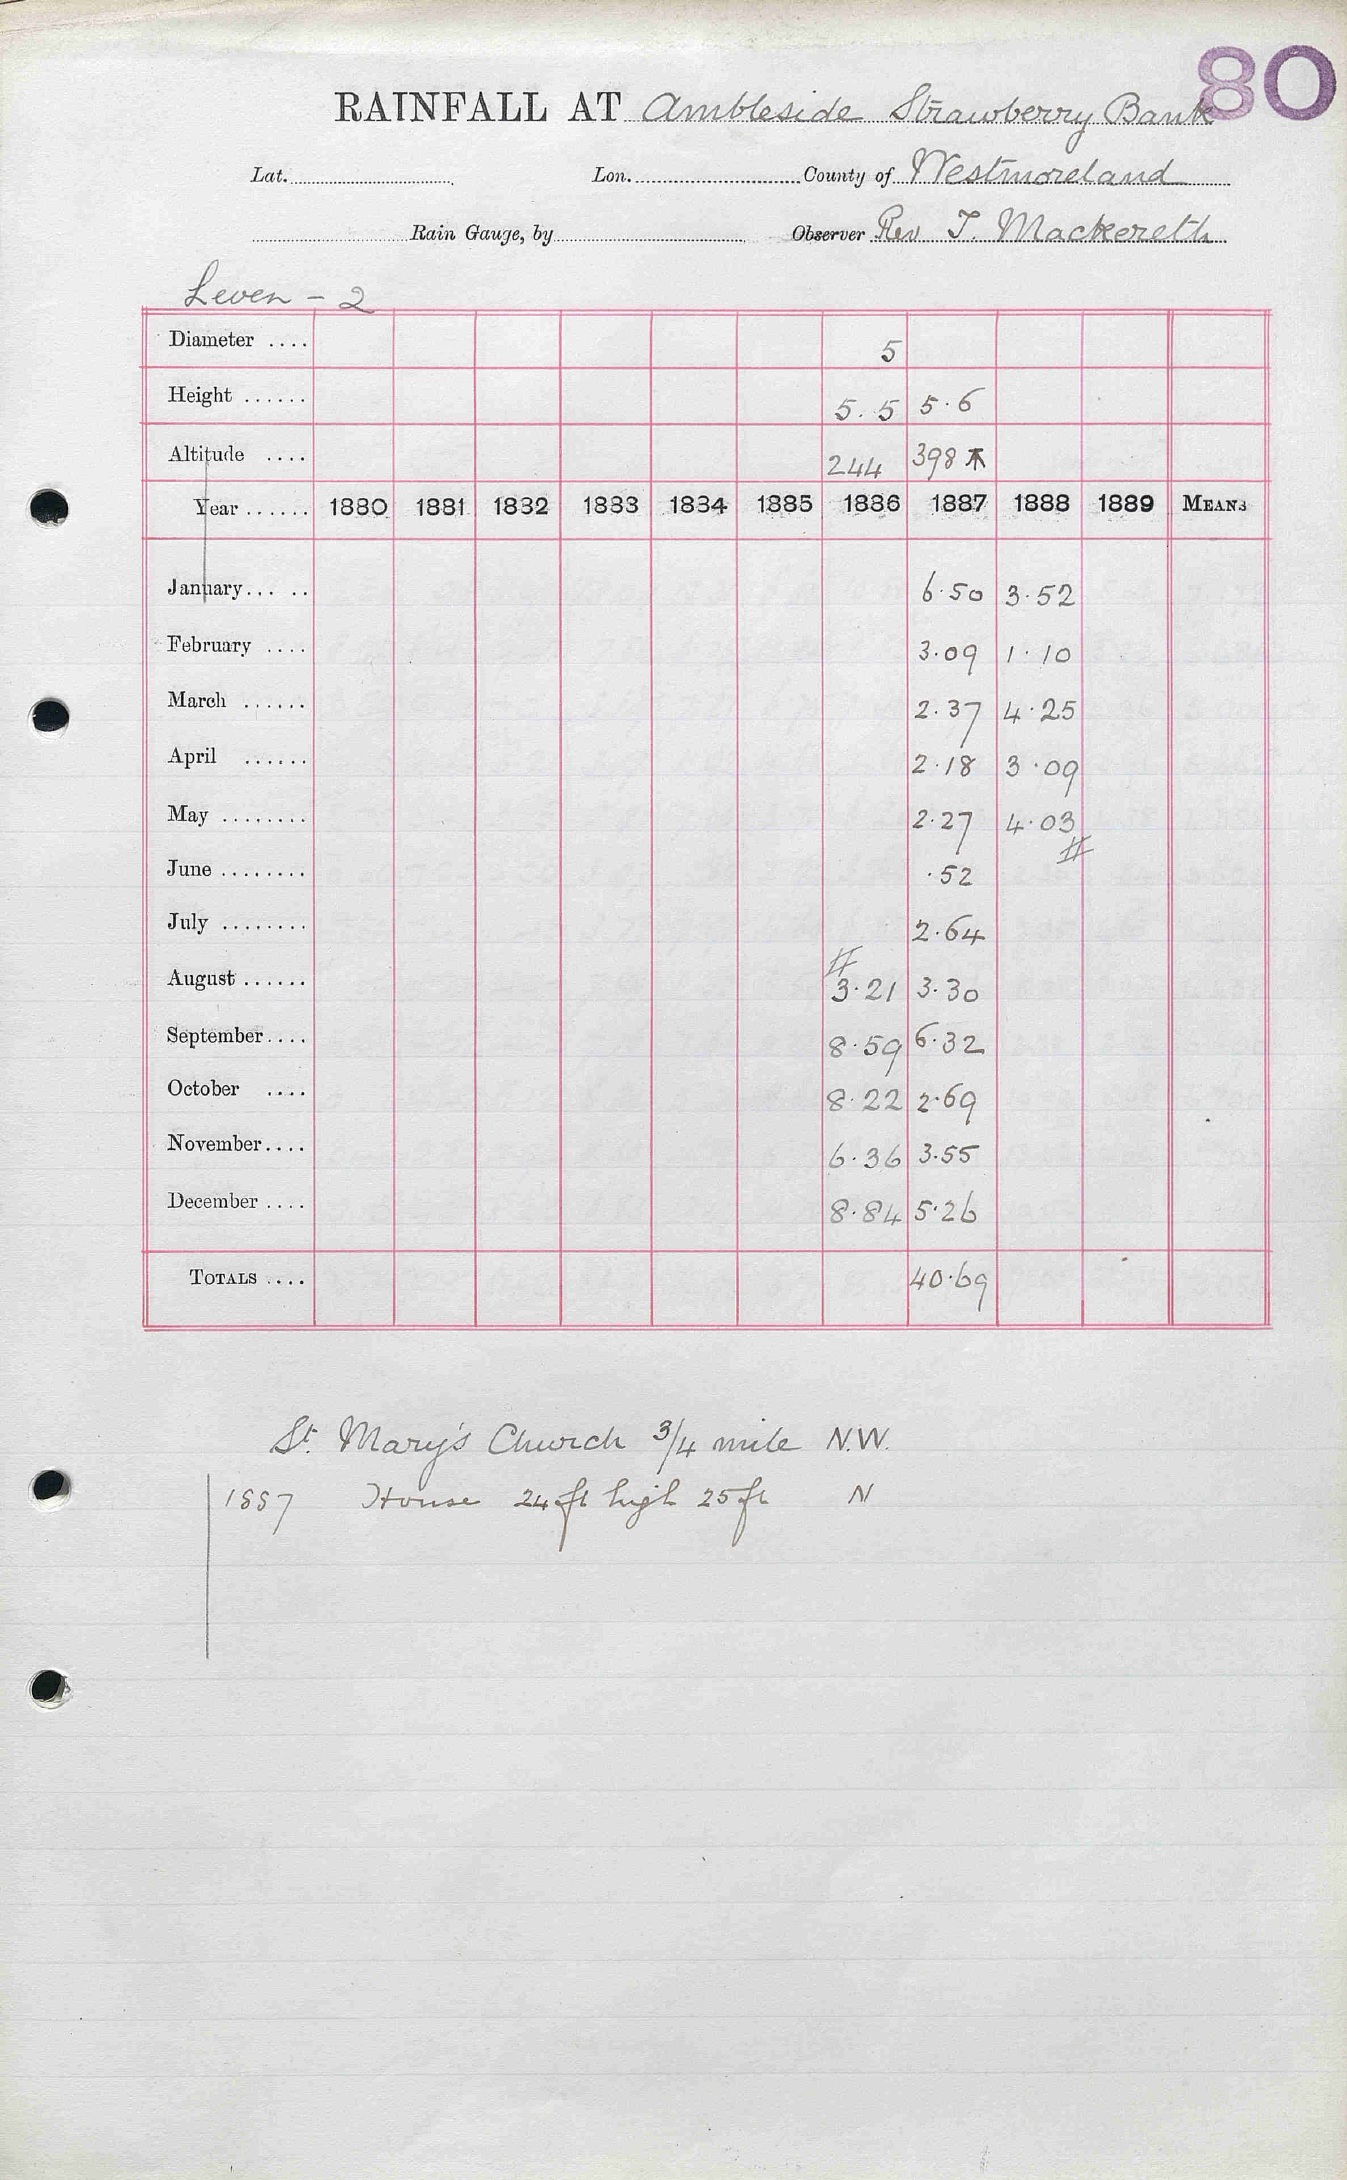 80
RAINFALL AT Ambleside Strawberry Bank
Lat. Lon. County of Westmoreland
Rain Gauge, by Observer Rev T. Mackereth
Leven - 2
Diameter .... 5
Height ...... 5.5 5.6
Altitude .... 244 398
Year ...... 1880 1881 1882 1883 1884 1885 1886 1887 1888 1889 MEANS
January ..... 6.50 3.52
February .... 3.09 1.10
March ...... 2.37 4.25
April ...... 2.18 3.09
May ........ 2.27 4.03
June ........ .52
July ........ 2.64
August ...... 3.21 3.30
September .... 8.59 6.32
October .... 8.22 2.69
November .... 6.36 3.55
December .... 8.84 5.26
TOTALS .... 40.69
St. Mary's Church 3/4 mile N.W.
1887 House 24 ft high 25 ft N